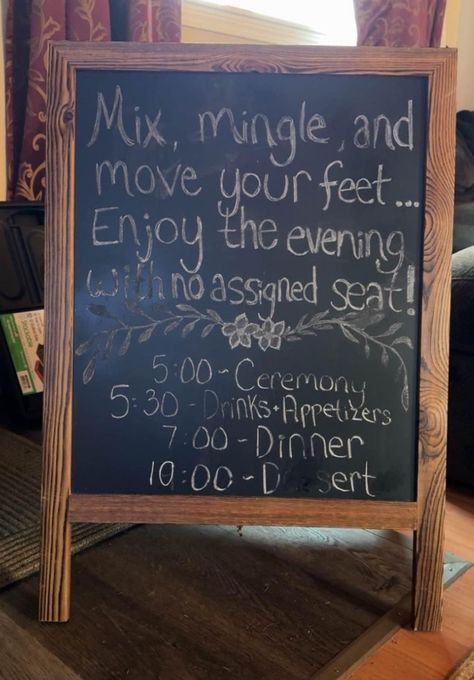 Mix, mingle, and
move your feet...
Enjoy the evening
with no assigned seat!
5:00 - Ceremony
5:30 - Drinks + Appetizers
7:00 - Dinner
10:00 - Dessert